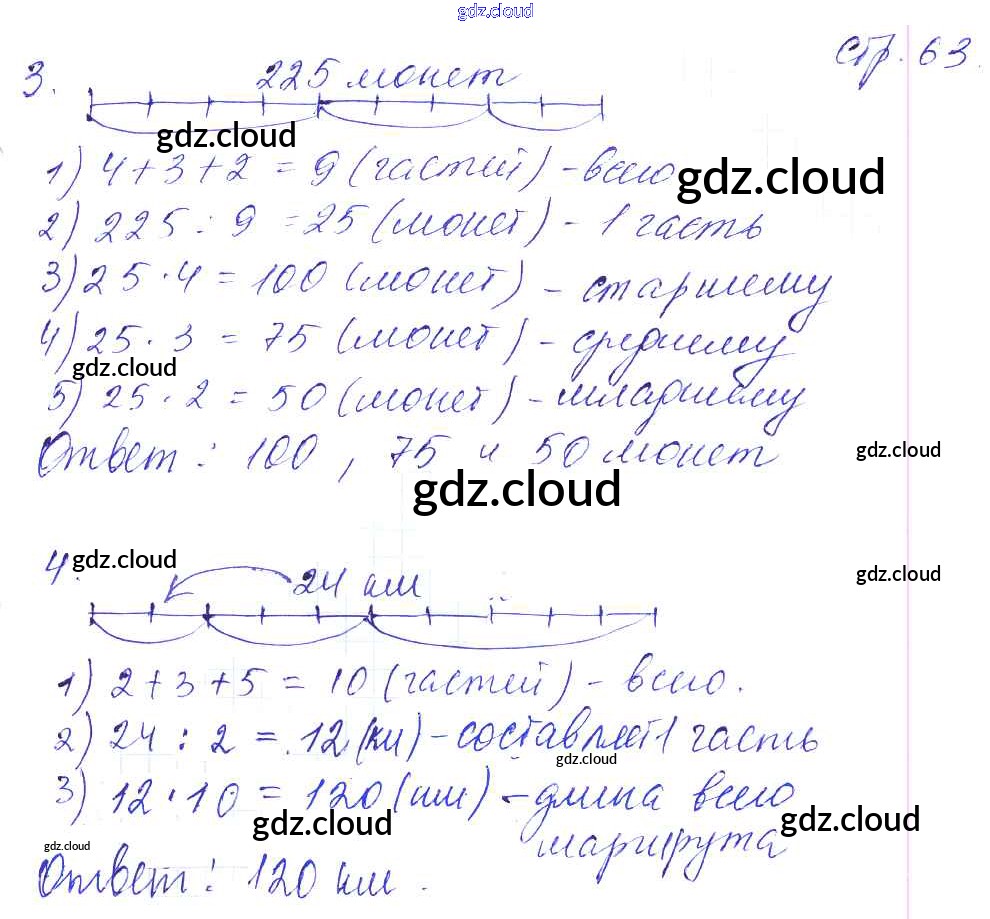 gdz.cloud
стр. 63.
3. 225 монет
gdz.cloud
1) 4+3+2 = 9 (частей) - всего
gdz.cloud
2) 225 : 9 = 25 (монет) - 1 часть
3) 25 · 4 = 100 (монет) - старшему
4) 25 · 3 = 75 (монет) - среднему
gdz.cloud
5) 25 · 2 = 50 (монет) - младшему
Ответ: 100, 75 и 50 монет
gdz.cloud
gdz.cloud
4. 24 км
gdz.cloud
gdz.cloud
1) 2+3+5 = 10 (частей) - всего.
2) 24 : 2 = 12 (км) - составляет 1 часть
gdz.cloud
3) 12 · 10 = 120 (км) - длина всего
маршрута
gdz.cloud
gdz.cloud
gdz.cloud
Ответ: 120 км.